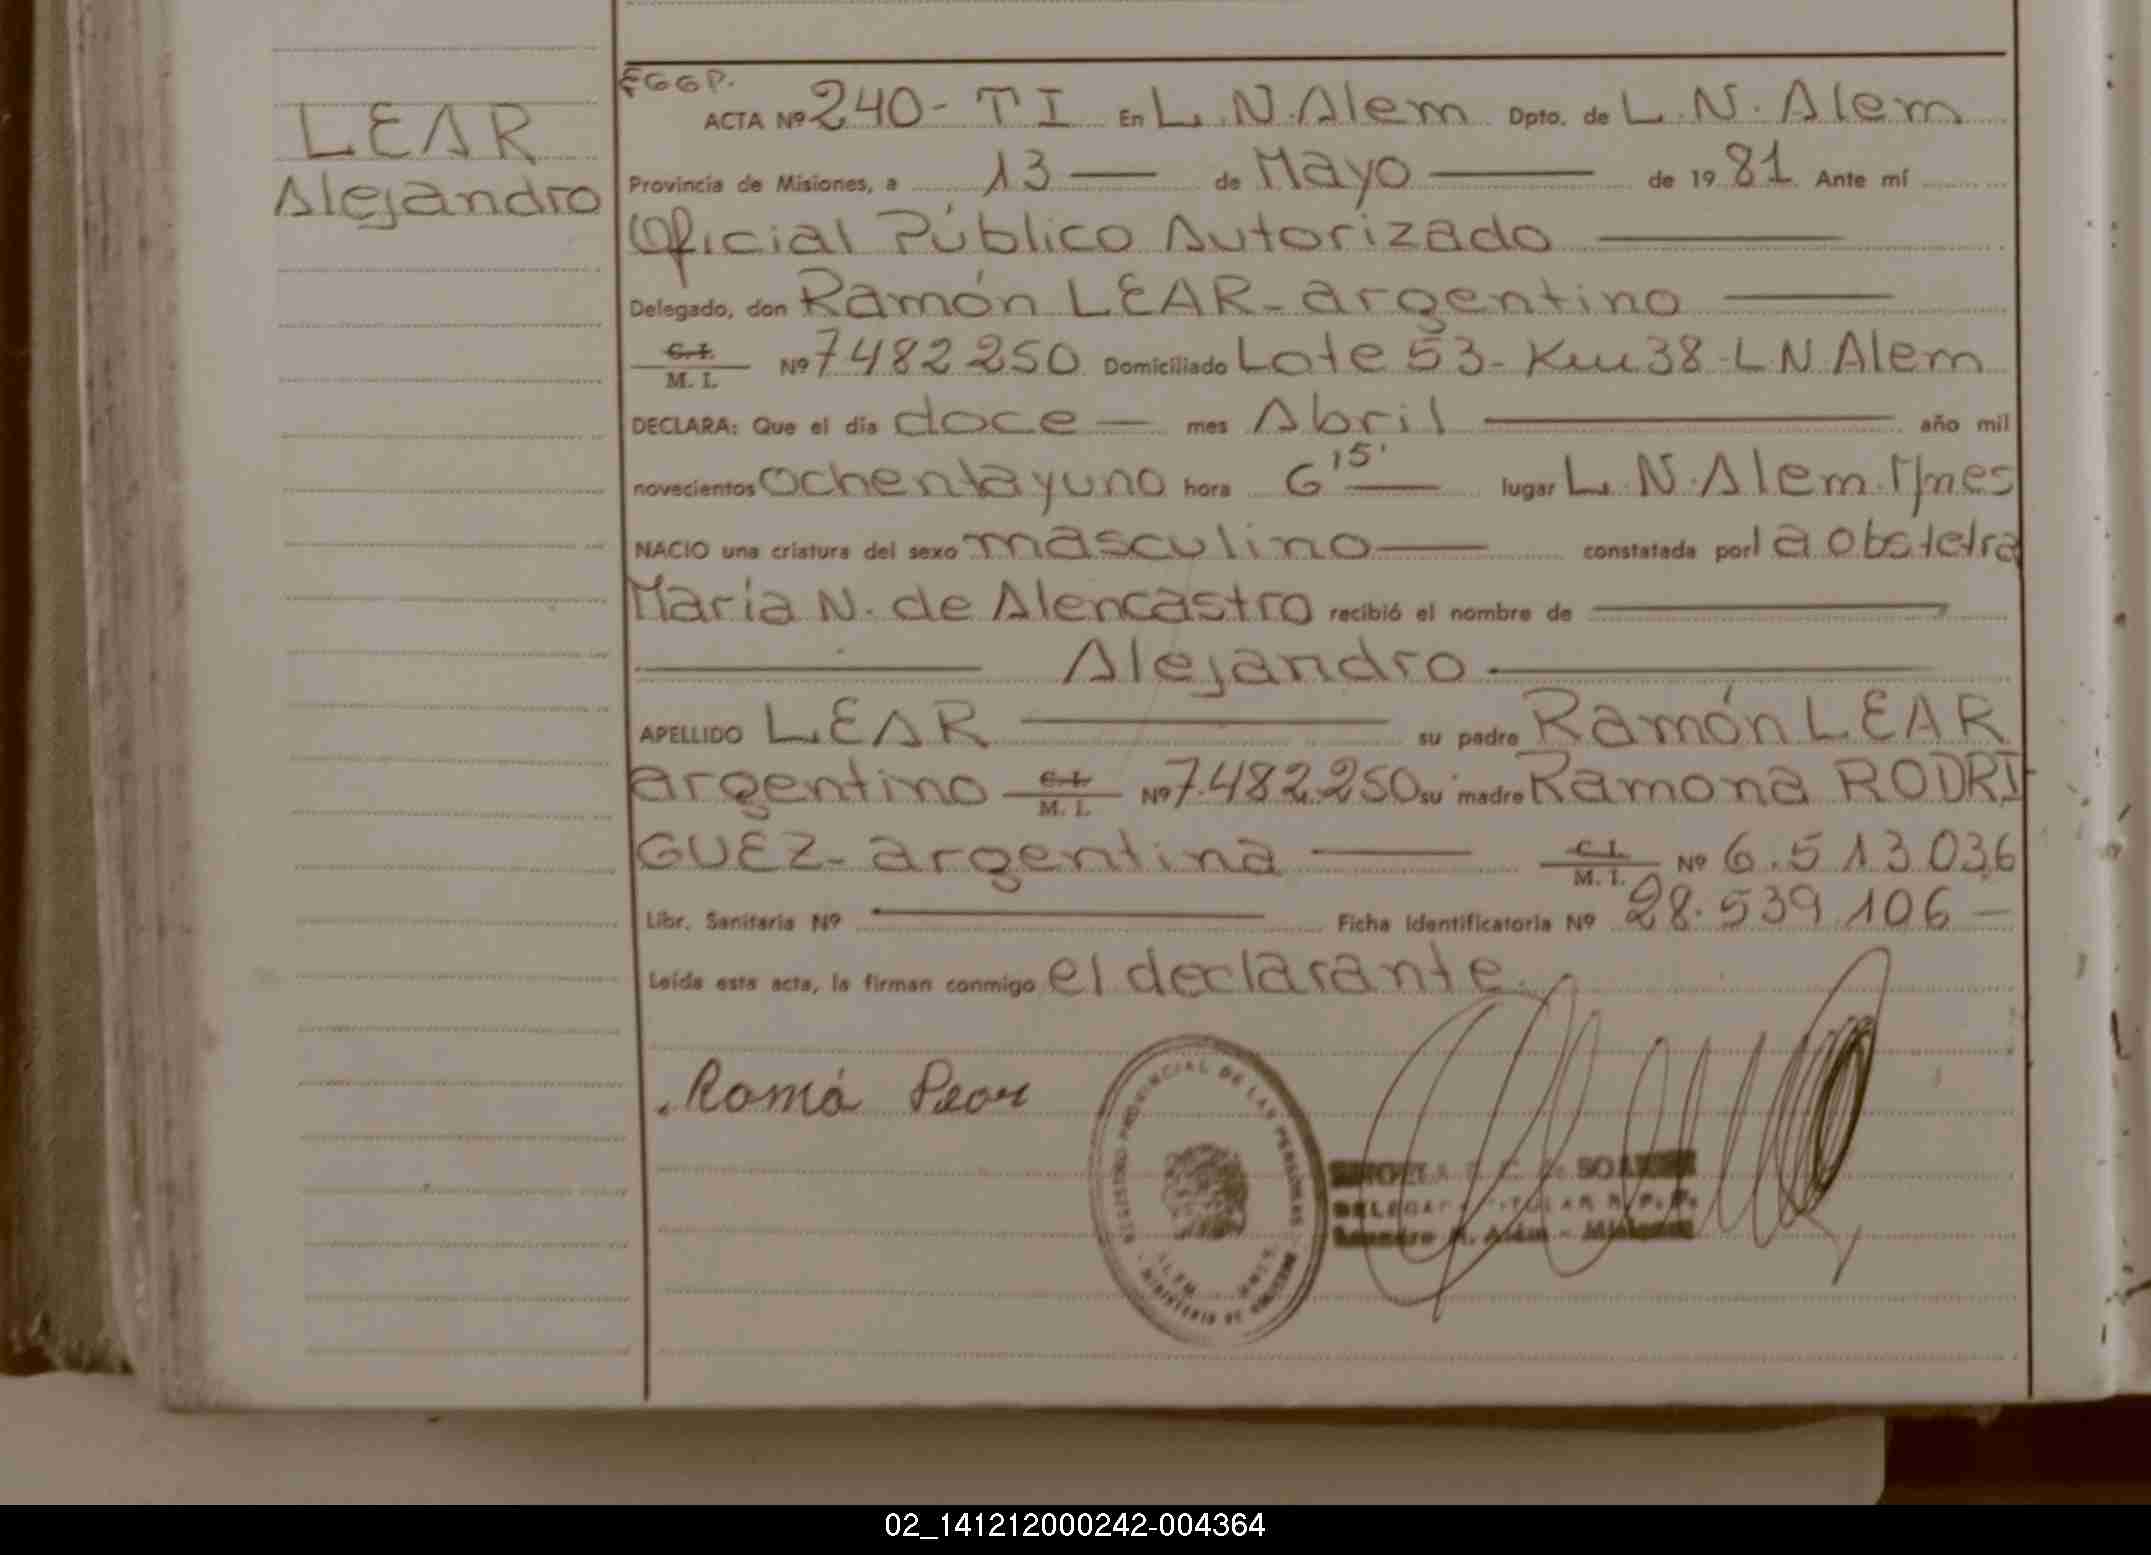 LEAR
Alejandro
EGGP.
ACTA Nº 240 - T I En L.N.Alem Dpto. de L.N.Alem
Provincia de Misiones, a 13 — de Mayo — de 1981 Ante mí
Oficial Público Autorizado —
Delegado, don Ramón LEAR - argentino —
C.I. / M. I. Nº 7482250 Domiciliado Lote 53 - Km 38 - L N Alem
DECLARA: Que el día doce — mes Abril — año mil
novecientos ochentayuno hora 6 15' lugar L.N.Alem. Mnes
NACIO una criatura del sexo masculino — constatada por la obstetra
María N. de Alencastro recibió el nombre de —
— Alejandro —
APELLIDO LEAR — su padre Ramón LEAR
argentino C.I. / M. I. Nº 7.482.250 su madre Ramona RODRI
GUEZ - argentina — C.I. / M. I. Nº 6.513.036
Libr. Sanitaria Nº — Ficha Identificatoria Nº 28.539.106 —
Leída esta acta, la firman conmigo el declarante.
Ramó Lear
REGISTRO PROVINCIAL DE LAS PERSONAS
ALEM
MINISTERIO DE
DELEGADA TITULAR R.P.P.
Leandro N. Alem - Misiones
02_141212000242-004364